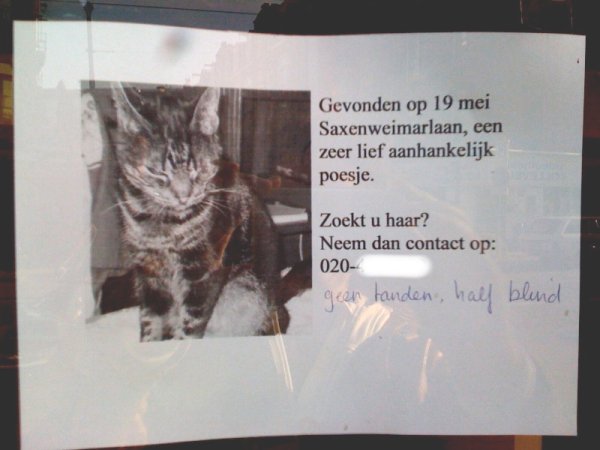 Gevonden op 19 mei
Saxenweimarlaan, een
zeer lief aanhankelijk
poesje.
Zoekt u haar?
Neem dan contact op:
020-
geen tanden, half blind